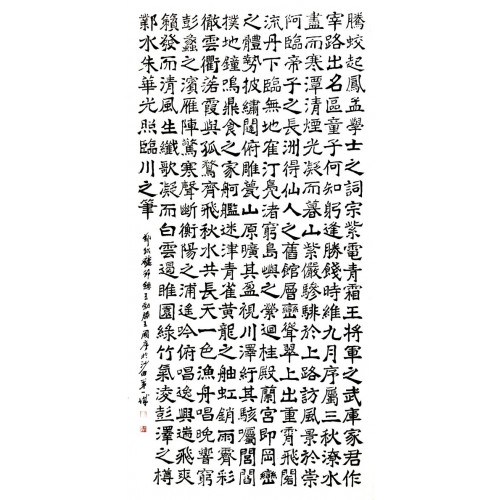 騰蛟起鳳孟學士之詞宗紫電青霜王將軍之武庫家君作
宰路出名區童子何知躬逢勝錢時維九月序屬三秋潦水
盡而寒潭清煙光凝而暮山紫儼驂騑於上路訪風景於崇
阿臨帝子之長洲得仙人之舊館層巒聳翠上出重霄飛閣
流丹下臨無地隺汀鳧渚窮島嶼之縈迴桂殿蘭宮即岡巒
之體勢披繡闥俯雕甍山原曠其盈視川澤紆其駭矚閭閻
撲地鐘鳴鼎食之家舸艦迷津青雀黃龍之舳虹銷雨霽彩
徹雲衢落霞與孤鶩齊飛秋水共長天一色漁舟唱晚響窮
彭蠡之濱雁陣驚寒聲斷衡陽之浦遙吟俯唱逸興遄飛爽
籟發而清風生纖歌凝而白雲遏睢園綠竹氣凌彭澤之樽
鄴水朱華光照臨川之筆
王勃滕王閣序於沙田第一城